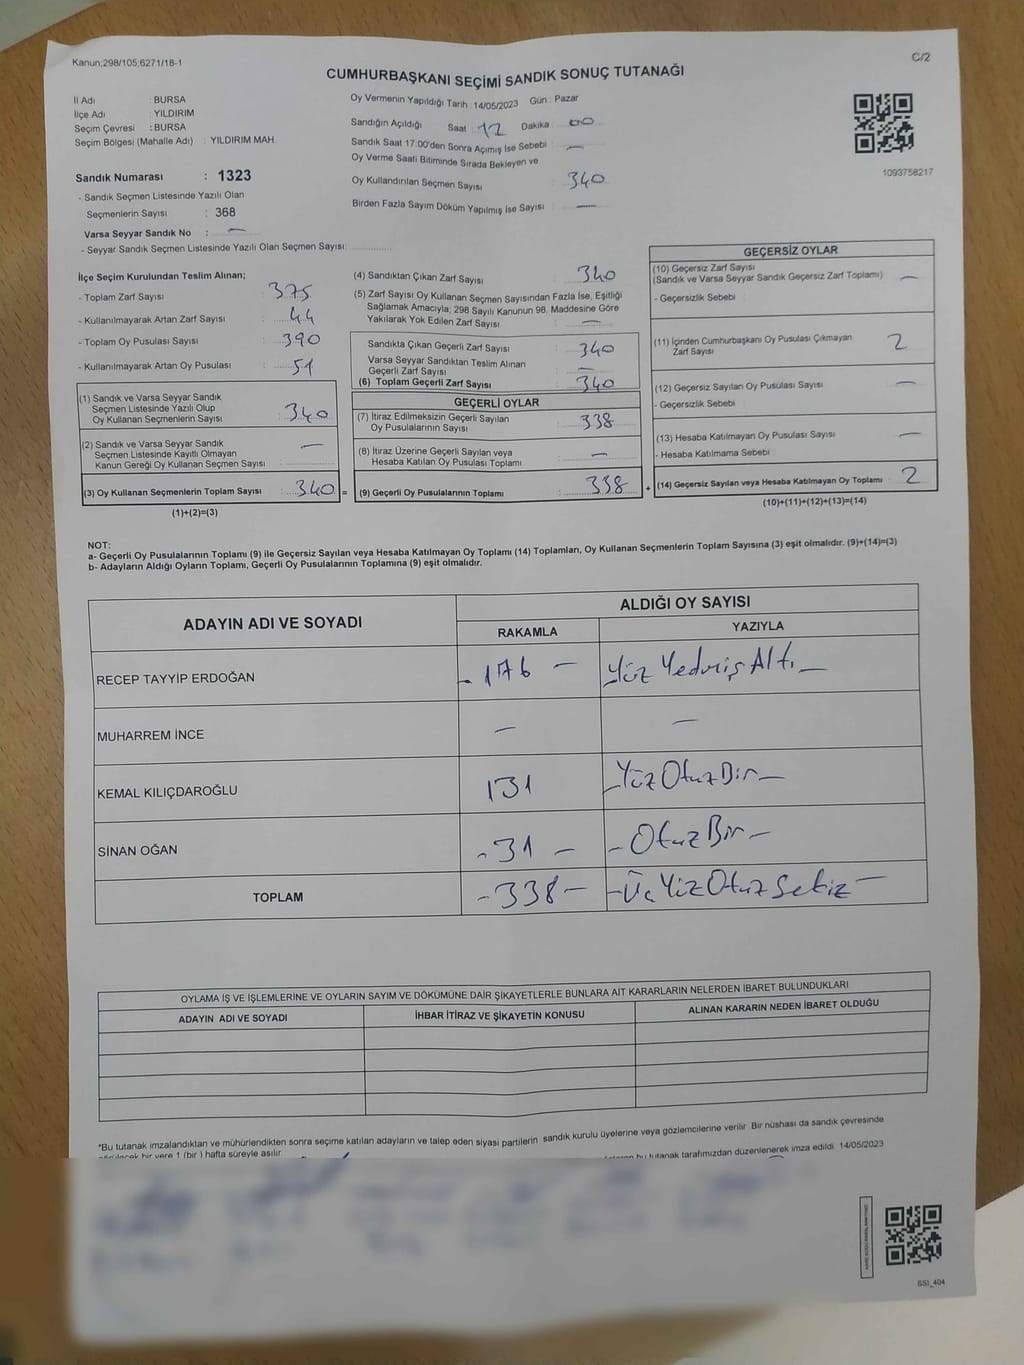 Kanun;298/105,6271/18-1
C/2
CUMHURBAŞKANI SEÇİMİ SANDIK SONUÇ TUTANAĞI
İl Adı : BURSA
İlçe Adı : YILDIRIM
Seçim Çevresi : BURSA
Seçim Bölgesi (Mahalle Adı) : YILDIRIM MAH.
Sandık Numarası : 1323
- Sandık Seçmen Listesinde Yazılı Olan
Seçmenlerin Sayısı : 368
Varsa Seyyar Sandık No : —
- Seyyar Sandık Seçmen Listesinde Yazılı Olan Seçmen Sayısı:
Oy Vermenin Yapıldığı Tarih : 14/05/2023 Gün : Pazar
Sandığın Açıldığı Saat : 17 Dakika : 00
Sandık Saat 17:00'den Sonra Açımış İse Sebebi : —
Oy Verme Saati Bitiminde Sırada Bekleyen ve
Oy Kullandırılan Seçmen Sayısı : 340
Birden Fazla Sayım Döküm Yapılmış İse Sayısı : —
1093758217
İlçe Seçim Kurulundan Teslim Alınan;
- Toplam Zarf Sayısı : 375
- Kullanılmayarak Artan Zarf Sayısı : 44
- Toplam Oy Pusulası Sayısı : 390
- Kullanılmayarak Artan Oy Pusulası : 51
(1) Sandık ve Varsa Seyyar Sandık
Seçmen Listesinde Yazılı Olup
Oy Kullanan Seçmenlerin Sayısı : 340
(2) Sandık ve Varsa Seyyar Sandık
Seçmen Listesinde Kayıtlı Olmayan
Kanun Gereği Oy Kullanan Seçmen Sayısı : —
(3) Oy Kullanan Seçmenlerin Toplam Sayısı : 340 =
(1)+(2)=(3)
(4) Sandıktan Çıkan Zarf Sayısı : 340
(5) Zarf Sayısı Oy Kullanan Seçmen Sayısından Fazla İse, Eşitliği
Sağlamak Amacıyla; 298 Sayılı Kanunun 98. Maddesine Göre
Yakılarak Yok Edilen Zarf Sayısı : —
Sandıkta Çıkan Geçerli Zarf Sayısı : 340
Varsa Seyyar Sandıktan Teslim Alınan
Geçerli Zarf Sayısı : —
(6) Toplam Geçerli Zarf Sayısı : 340
GEÇERLİ OYLAR
(7) İtiraz Edilmeksizin Geçerli Sayılan
Oy Pusulalarının Sayısı : 338
(8) İtiraz Üzerine Geçerli Sayılan veya
Hesaba Katılan Oy Pusulası Toplamı : —
(9) Geçerli Oy Pusulalarının Toplamı : 338 +
GEÇERSİZ OYLAR
(10) Geçersiz Zarf Sayısı
(Sandık ve Varsa Seyyar Sandık Geçersiz Zarf Toplamı) : —
- Geçersizlik Sebebi :
(11) İçinden Cumhurbaşkanı Oy Pusulası Çıkmayan
Zarf Sayısı : 2
(12) Geçersiz Sayılan Oy Pusulası Sayısı : —
- Geçersizlik Sebebi :
(13) Hesaba Katılmayan Oy Pusulası Sayısı : —
- Hesaba Katılmama Sebebi :
(14) Geçersiz Sayılan veya Hesaba Katılmayan Oy Toplamı : 2
(10)+(11)+(12)+(13)=(14)
NOT:
a- Geçerli Oy Pusulalarının Toplamı (9) ile Geçersiz Sayılan veya Hesaba Katılmayan Oy Toplamı (14) Toplamları, Oy Kullanan Seçmenlerin Toplam Sayısına (3) eşit olmalıdır. (9)+(14)=(3)
b- Adayların Aldığı Oyların Toplamı, Geçerli Oy Pusulalarının Toplamına (9) eşit olmalıdır.
ADAYIN ADI VE SOYADI
ALDIĞI OY SAYISI
RAKAMLA YAZIYLA
RECEP TAYYİP ERDOĞAN - 176 — -Yüz Yedmiş Altı-
MUHARREM İNCE — —
KEMAL KILIÇDAROĞLU 131 -Yüz Otuz Bir-
SİNAN OĞAN - 31 - - Otuz Bir -
TOPLAM - 338 - - Üç Yüz Otuz Sekiz -
OYLAMA İŞ VE İŞLEMLERİNE VE OYLARIN SAYIM VE DÖKÜMÜNE DAİR ŞİKAYETLERLE BUNLARA AİT KARARLARIN NELERDEN İBARET BULUNDUKLARI
ADAYIN ADI VE SOYADI İHBAR İTİRAZ VE ŞİKAYETİN KONUSU ALINAN KARARIN NEDEN İBARET OLDUĞU
*Bu tutanak imzalandıktan ve mühürlendikten sonra seçime katılan adayların ve talep eden siyasi partilerin sandık kurulu üyelerine veya gözlemcilerine verilir. Bir nüshası da sandık çevresinde
görülecek bir yere 1 (bir ) hafta süreyle asılır.
bu tutanak tarafımızdan düzenlenerek imza edildi. 14/05/2023
SSI_404